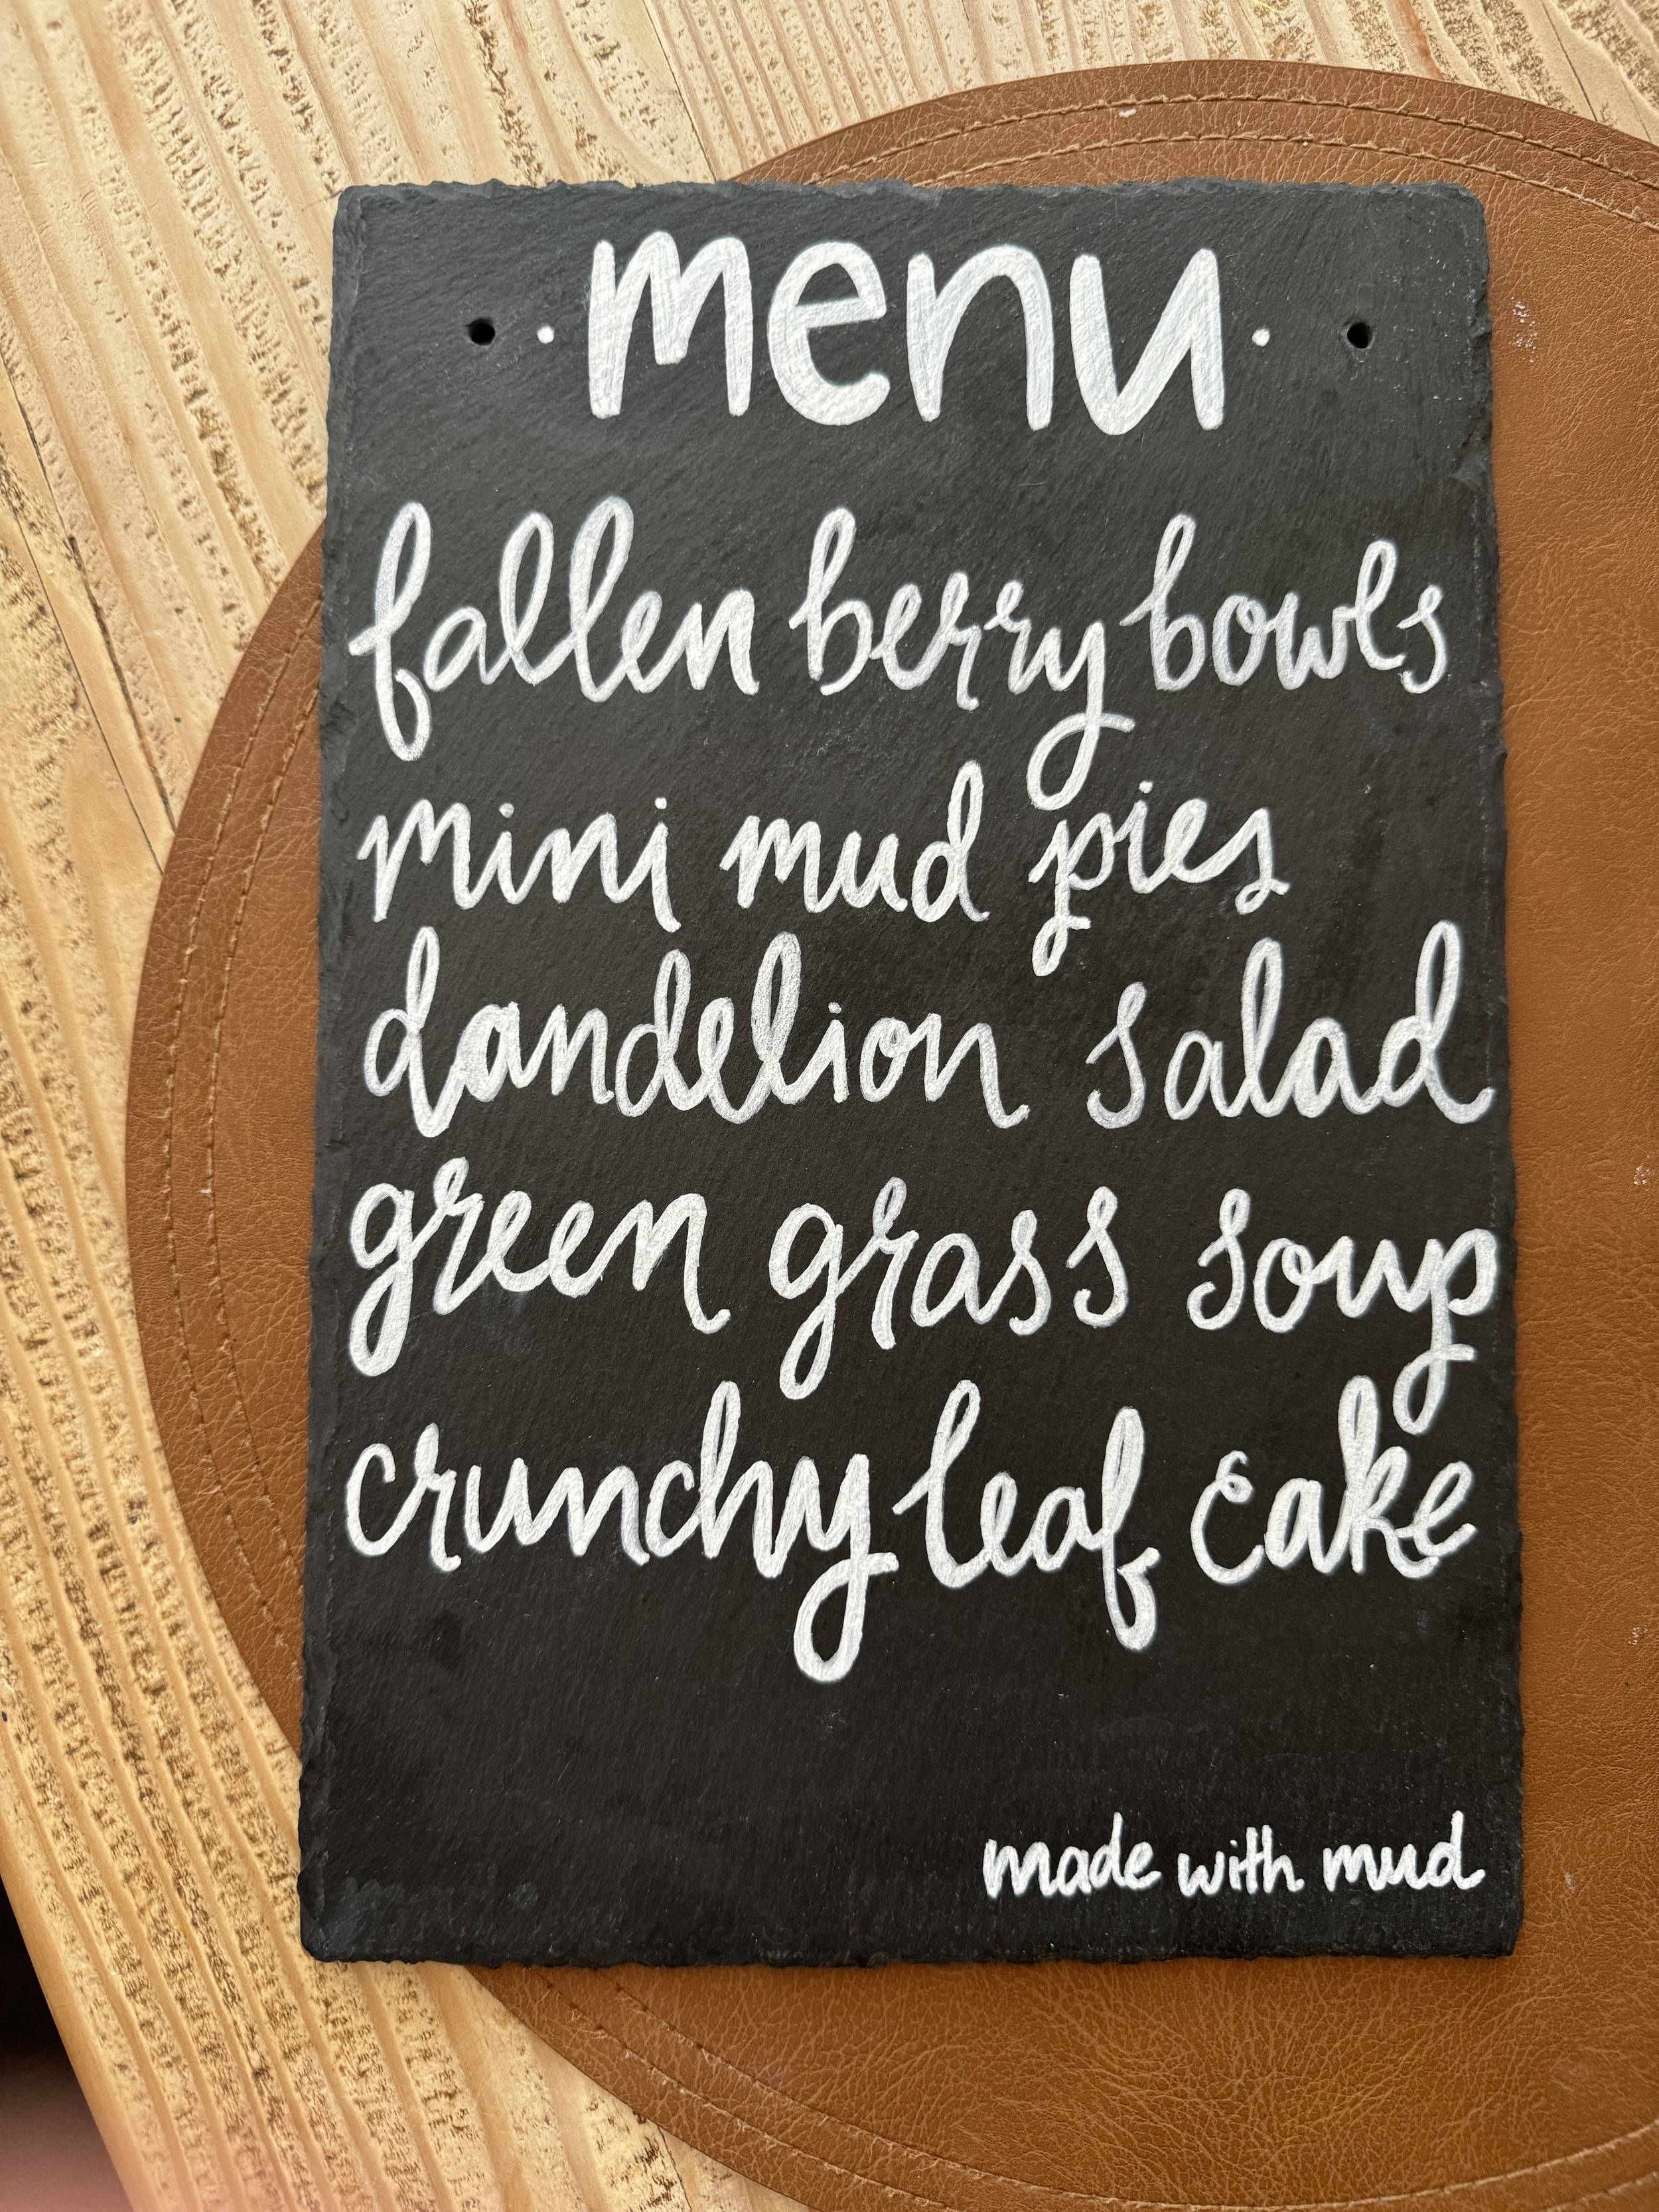 ·menu·
fallen berry bowls
mini mud pies
dandelion salad
green grass soup
crunchy leaf cake
made with mud